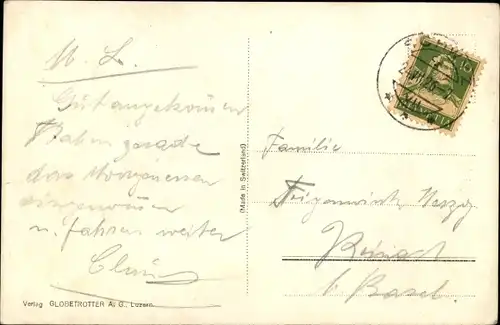 M. L.
Gut angekommen
Haben gerade
das Morgenessen
eingenommen
u. fahren weiter
Verlag GLOBETROTTER A. G., Luzern.
(Made in Switzerland)
10
HELVETIA
Familie
Herzog
Reinach
b. Basel.